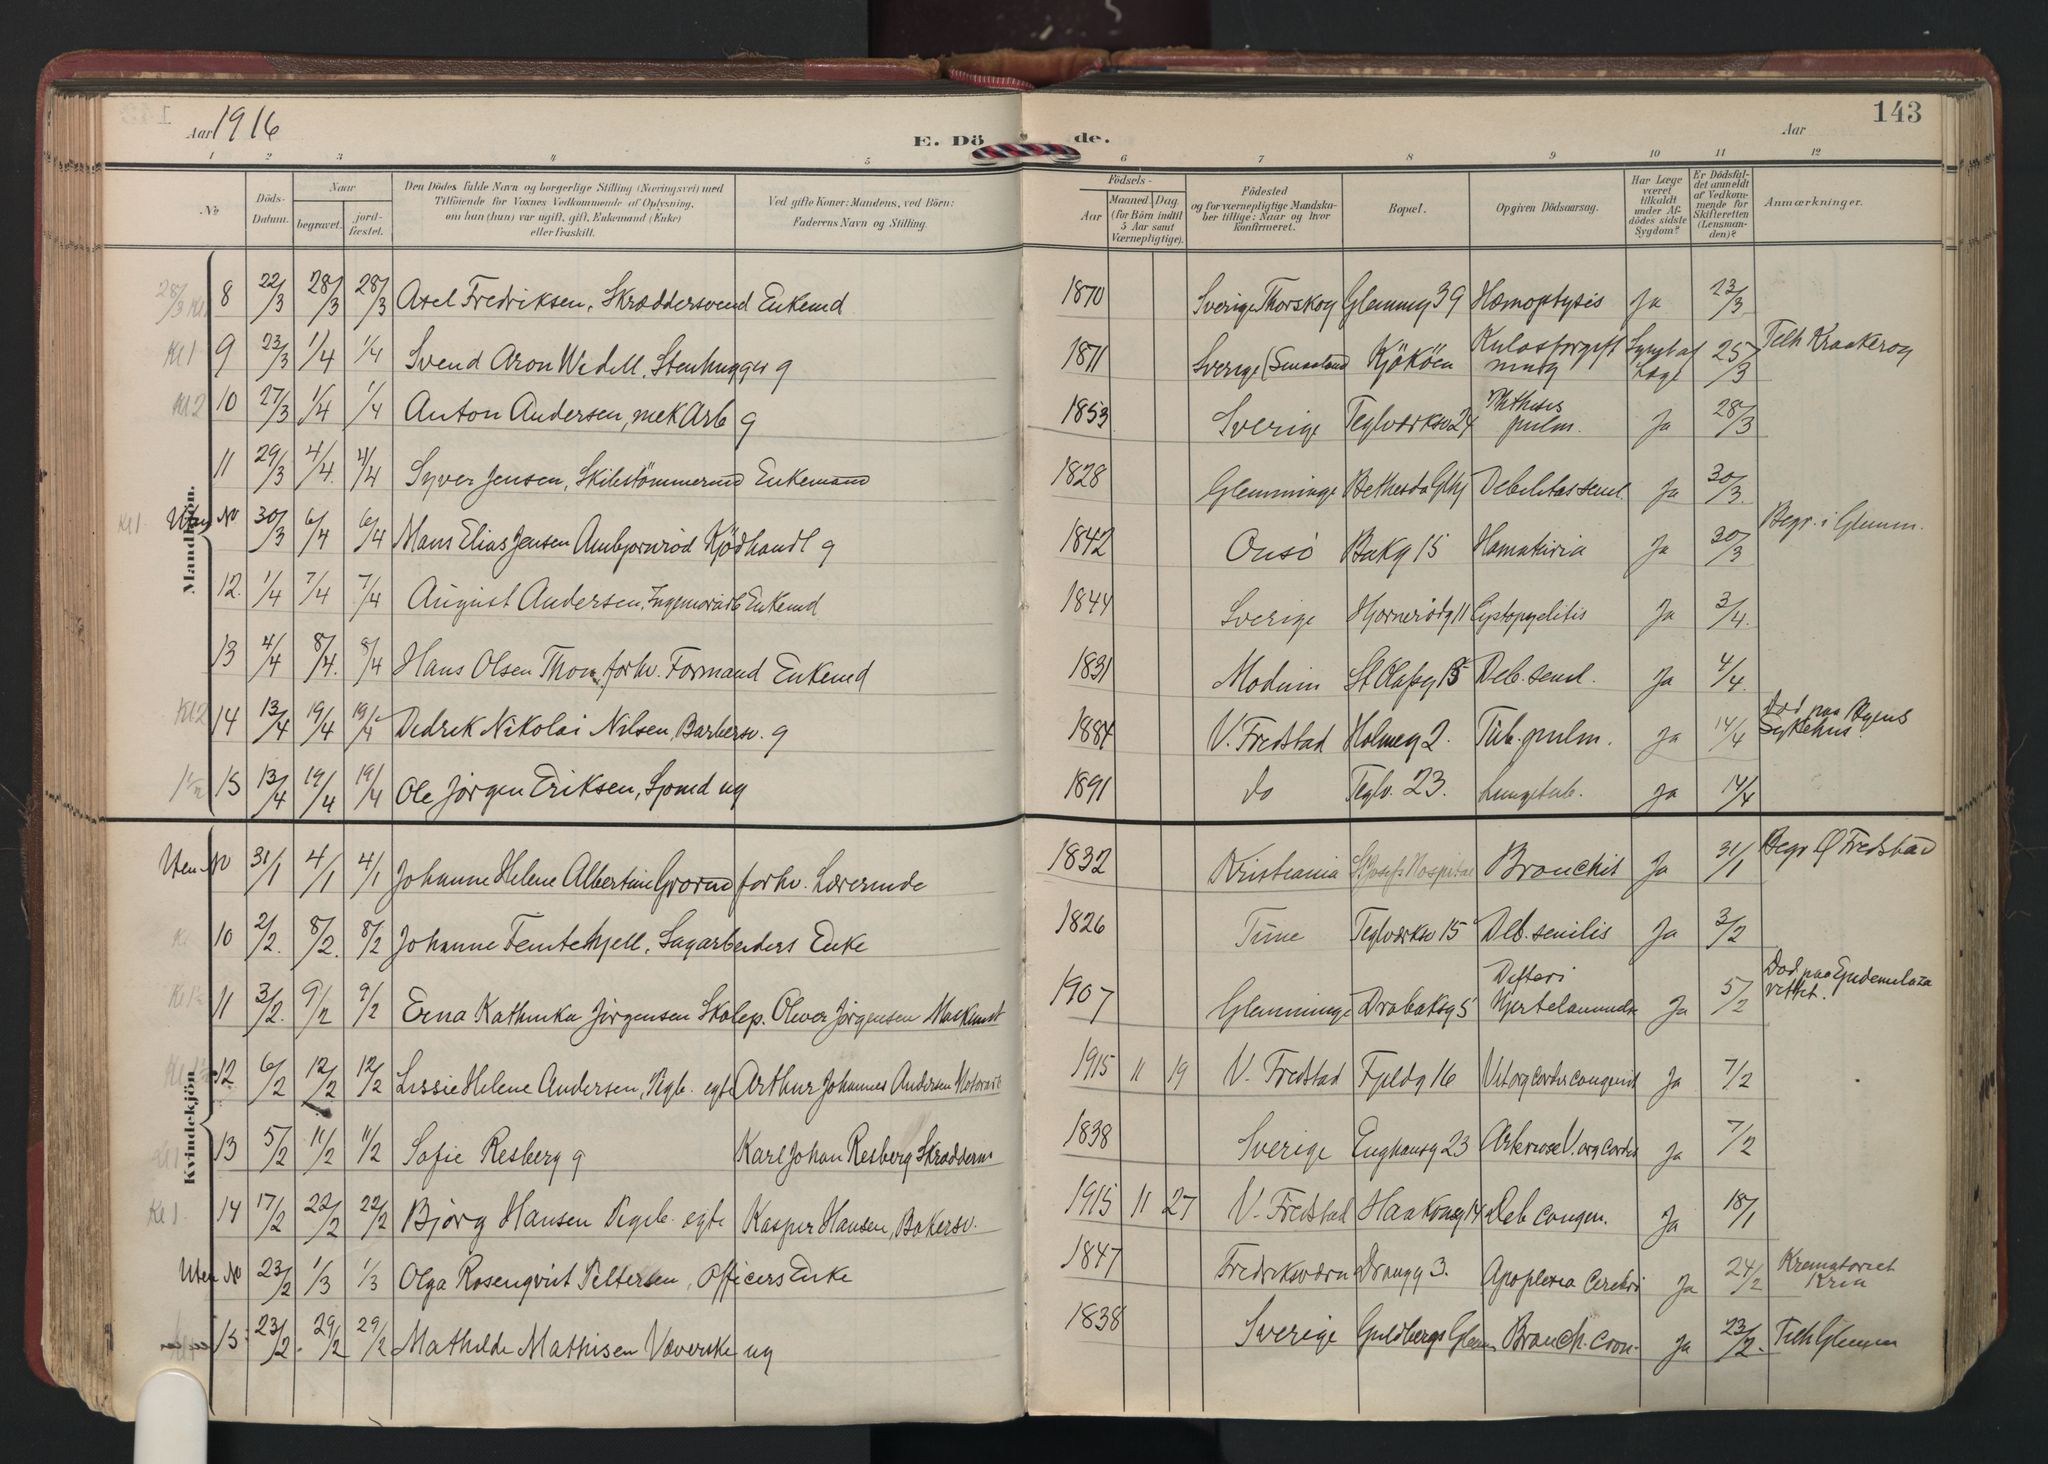 143
Aar 1916
E. Dö de.
Aar
1 2 3 4 5 6 7 8 9 10 11 12
No
Döds-Datum.
Naar
begravet.
jord-fæstet.
Den Dödes fulde Navn og borgerlige Stilling (Næringsvei) med
Tilföiende for Voxnes Vedkommende af Oplysning,
om han (hun) var ugift, gift, Enkemand (Enke)
eller fraskilt.
Ved gifte Koner: Mandens, ved Börn:
Faderens Navn og Stilling.
Födsels-
Aar
Maaned. Dag.
(for Börn indtil
5 Aar samt
Værnepligtige).
Födested
og for værnepligtige Mandska-
ber tillige: Naar og hvor
konfirmeret.
Bopæl.
Opgiven Dödsaarsag.
Har Læge
været
tilkaldt
under Af-
dödes sidste
Sygdom?
Er Dödsfal-
det anmeldt
af Vedkom-
mende for
Skifteretten
(Lensman-
den)?
Anmærkninger.
Mandkjön.
8 22/3 28/3 28/3 Axel Fredriksen, Skræddersvend Enkemd 1870 Sverige Thorskog Glemmg 39 Hæmoptysis Ja 23/3
9 23/3 1/4 1/4 Svend Aron Wedell, Stenhugger g 1871 Sverige (Smaaland Kjökön Kulosforgift ning Lage 25/3 Telh Kraakerøy
10 27/3 1/4 1/4 Anton Andersen, mek Arb g 1853 Sverige Teglværksv 24 Phthisis pulm. Ja 28/3
11 29/3 4/4 4/4 Syver Jensen, Skibstømmermd Enkemand 1828 Glemminge Bethesda Debilitas senil Ja 30/3
Uten No 30/3 6/4 6/4 Hans Elias Jensen Ambjornrod Kjödhandl g 1842 Onsö Bakg 15 Hamaturia Ja 30/3 Begr. i Glemm.
12. 1/4 7/4 7/4 August Andersen, Enkemd 1844 Sverige Hjornerödg 11 Cystopyelitis Ja 3/4
13 4/4 8/4 8/4 Hans Olsen Thon, forhv. Formand Enkemd 1831 Modum St Olafsg 15 Deb. senil. Ja 4/4
14 13/4 19/4 19/4 Didrik Nikolai Nilsen, Barbersv. g 1884 V. Fredstad Holmeg 2. Tub. pulm. Ja 14/4 Död paa Byens Sykehus.
15 13/4 19/4 19/4 Ole Jörgen Eriksen, Sjømd ug 1891 do Teglv. 23. Lungetub. Ja 14/4
Kvindekjön
Uten No 31/1 4/1 4/1 Johanne Helene Albertine forhv. Lærerinde 1832 Kristiania St Josefs Hospital Bronchit Ja 31/1 Begr Ø Fredstad
10 2/2. 8/2. 8/2 Johanne Femtehjell, Sagarbeiders Enke 1826 Tune Teglværksv 15 Deb. senilis Ja 3/2
11 3/2. 9/2 9/2 Erna Kathinka Jörgensen Skolep. Oliver Jörgensen Maskinist 1907 Glemminge Drabaksg 5 Difteri Ja 5/2 Död paa Epidemilaza rettet.
12 6/2 12/2 12/2 Lissie Helene Andersen, Pigb. egte Arthur Johannes Andersen Motorarb 1915 11 19 V. Fredstad Fjeldg 16 Vit org cordis congenit Ja 7/2
13 5/2 11/2 11/2 Sofie Resberg g Karl Johan Resberg Skrædderm 1838 Sverige Enghausg 23 Ja 7/2
14 17/2 22/2 22/2 Björg Hansen Pigeb. egte Kasper Hansen, Bakersv. 1915 11 27 V. Fredstad Haakonsg 14 Deb congen. Ja 18/1
Uten No 23/2 1/3 1/3 Olga Rosenqvist Pettersen, Officers Enke 1847 Fredriksværn 3. Apoplexia Cerebri Ja 24/2 Krematoriet Kria
15 23/2 29/2 29/2 Mathilde Mathisen Væverske ug 1838 Sverige Guldbergs Glemm Bronch. Ja 23/2 Telh Glemm